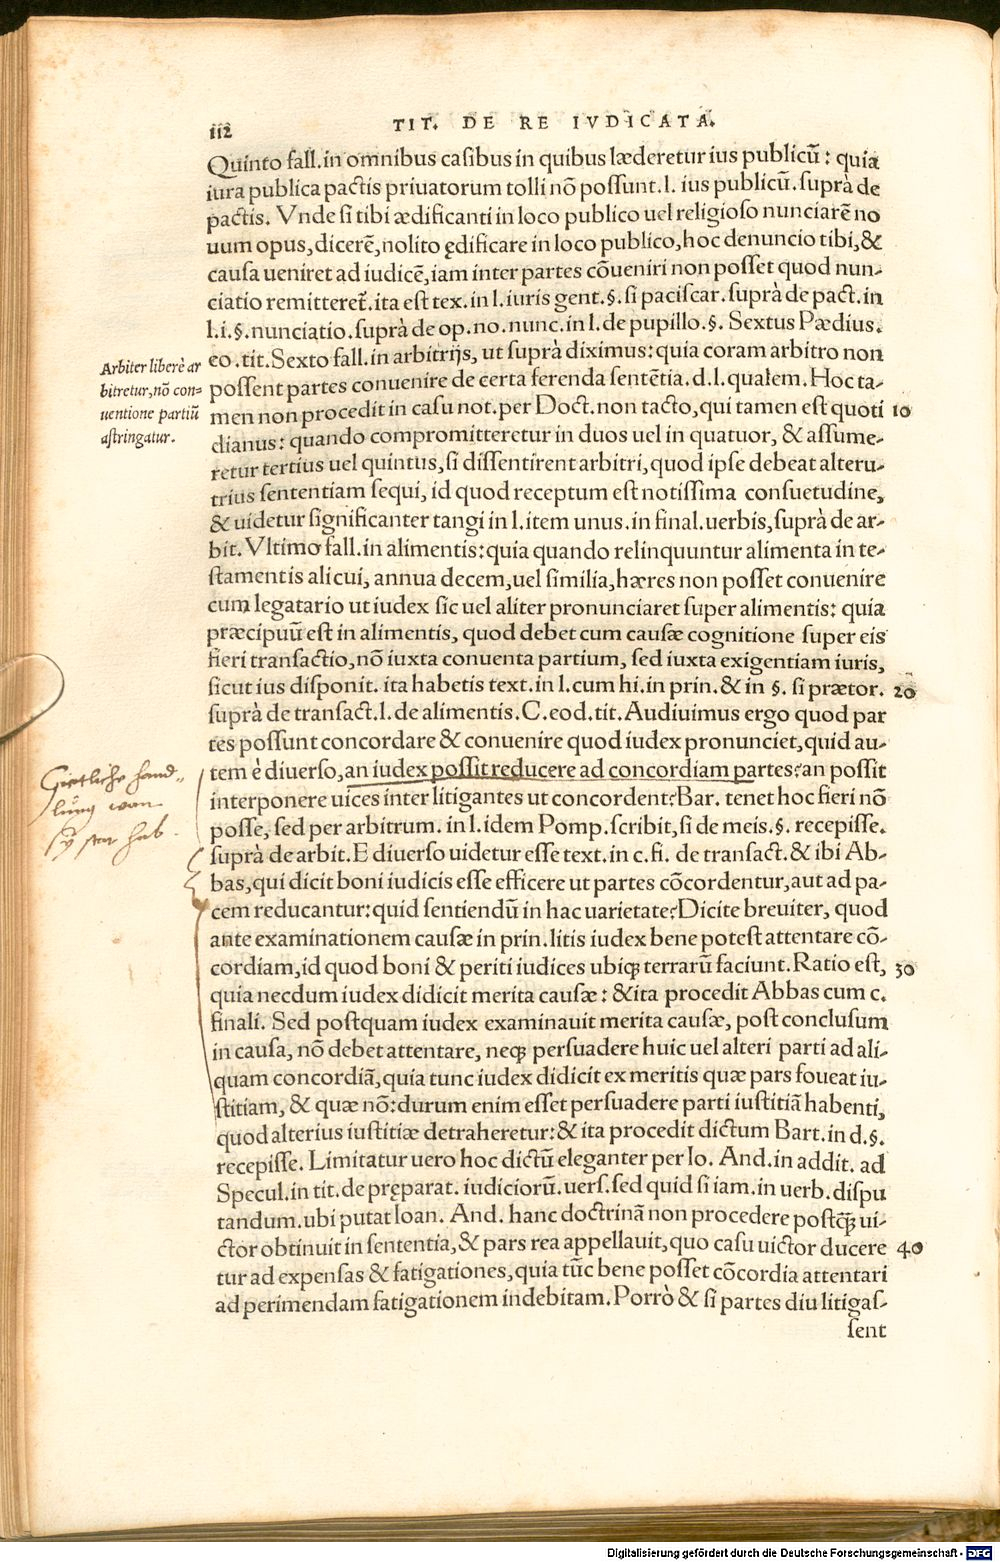 112
TIT. DE RE IVDICATA.
Quinto fall. in omnibus casibus in quibus læderetur ius publicũ: quia
iura publica pactis priuatorum tolli nõ possunt. l. ius publicũ. suprà de
pactis. Vnde si tibi ædificanti in loco publico uel religioso nunciarẽ no
uum opus, dicerẽ, nolito ędificare in loco publico, hoc denuncio tibi, &
causa ueniret ad iudicẽ, iam inter partes cõueniri non posset quod nun-
ciatio remitteret̃. ita est tex. in l. iuris gent. §. si paciscar. suprà de pact. in
l. i. §. nunciatio. suprà de op. no. nunc. in l. de pupillo. §. Sextus Pædius.
eo. tit. Sexto fall. in arbitrijs, ut suprà diximus: quia coram arbitro non
possent partes conuenire de certa ferenda sentẽtia. d. l. qualem. Hoc ta-
men non procedit in casu not. per Doct. non tacto, qui tamen est quoti 10
dianus: quando compromitteretur in duos uel in quatuor, & assume-
retur tertius uel quintus, si dissentirent arbitri, quod ipse debeat alteru-
trius sententiam sequi, id quod receptum est notissima consuetudine,
& uidetur significanter tangi in l. item unus. in final. uerbis, suprà de ar-
bit. Vltimo fall. in alimentis: quia quando relinquuntur alimenta in te-
stamentis alicui, annua decem, uel similia, hæres non posset conuenire
cum legatario ut iudex sic uel aliter pronunciaret super alimentis: quia
præcipuũ est in alimentis, quod debet cum causæ cognitione super eis
fieri transactio, nõ iuxta conuenta partium, sed iuxta exigentiam iuris,
sicut ius disponit. ita habetis text. in l. cum hi. in prin. & in §. si prætor. 20
suprà de transact. l. de alimentis. C. eod. tit. Audiuimus ergo quod par
tes possunt concordare & conuenire quod iudex pronunciet, quid au-
tem è diuerso, an iudex possit reducere ad concordiam partes? an possit
interponere uices inter litigantes ut concordent? Bar. tenet hoc fieri nõ
posse, sed per arbitrum. in l. idem Pomp. scribit, si de meis. §. recepisse.
suprà de arbit. E diuerso uidetur esse text. in c. fi. de transact. & ibi Ab-
bas, qui dicit boni iudicis esse efficere ut partes cõcordentur, aut ad pa-
cem reducantur: quid sentiendũ in hac uarietate? Dicite breuiter, quod
ante examinationem causæ in prin. litis iudex bene potest attentare cõ-
cordiam, id quod boni & periti iudices ubiq; terrarũ faciunt. Ratio est, 30
quia necdum iudex didicit merita causæ: & ita procedit Abbas cum c.
finali. Sed postquam iudex examinauit merita causæ, post conclusum
in causa, nõ debet attentare, neq; persuadere huic uel alteri parti ad ali-
quam concordiã, quia tunc iudex didicit ex meritis quæ pars foueat iu-
stitiam, & quæ nõ: durum enim esset persuadere parti iustitiã habenti,
quod alterius iustitiæ detraheretur: & ita procedit dictum Bart. in d. §.
recepisse. Limitatur uero hoc dictũ eleganter per Io. And. in addit. ad
Specul. in tit. de pręparat. iudiciorũ. uers. sed quid si iam. in uerb. dispu
tandum. ubi putat Ioan. And. hanc doctrinã non procedere postq̃ʒ ui-
ctor obtinuit in sententia, & pars rea appellauit, quo casu uictor ducere 40
tur ad expensas & fatigationes, quia tũc bene posset cõcordia attentari
ad perimendam fatigationem indebitam. Porrò & si partes diu litigas-
sent
Arbiter liberè ar
bitretur, nõ con=
uentione partiũ
astringatur.
Gietliche hand„
lung wan
hab.
Digitalisierung gefördert durch die Deutsche Forschungsgemeinschaft - DFG